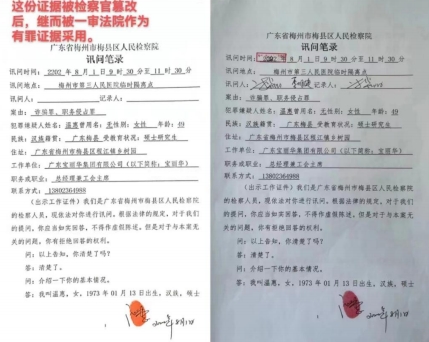 这份证据被检察官篡改
后，继而被一审法院作为
有罪证据采用。
广东省梅州市梅县区人民检察院
讯问笔录
讯问时间：2202年8月1日9时30分至11时30分
讯问地点：梅州市第三人民医院临时隔离点
讯问人：
记录人：
案由：诈骗罪、职务侵占罪
犯罪嫌疑人姓名：温惠 曾用名：无 性别：女 年龄：49
民族：汉族 籍贯：广东梅县 受教育状况：硕士研究生
住址：广东省梅州市梅县区程江镇乡树园
工作单位：广东宝丽华集团有限公司（以下简称：宝丽华）
职务或职业：总经理兼工会主席
联系方式：13802364988
（出示工作证件）我们是广东省梅州市梅县区人民检察院
的检察人员，现依法对你进行讯问。根据法律的规定，对于我们
的提问，你应当如实回答，不得作虚假陈述，但是对于与本案无
关的问题，你有拒绝回答的权利。
问：以上告知，你清楚了吗？
答：清楚了。
问：介绍一下你的基本情况。
答：我叫温惠，女，1973年01月13日出生，汉族，硕士
广东省梅州市梅县区人民检察院
讯问笔录
讯问时间：2022年8月1日9时30分至11时30分
讯问地点：梅州市第三人民医院临时隔离点
讯问人：
记录人：
案由：诈骗罪、职务侵占罪
犯罪嫌疑人姓名：温惠 曾用名：无 性别：女 年龄：49
民族：汉族 籍贯：广东梅县 受教育状况：硕士研究生
住址：广东省梅州市梅县区程江镇乡树园
工作单位：广东宝丽华集团有限公司（以下简称：宝丽华）
职务或职业：总经理兼工会主席
联系方式：13802364988
（出示工作证件）我们是广东省梅州市梅县区人民检察院
的检察人员，现依法对你进行讯问。根据法律的规定，对于我们
的提问，你应当如实回答，不得作虚假陈述，但是对于与本案无
关的问题，你有拒绝回答的权利。
问：以上告知，你清楚了吗？
答：清楚了。
问：介绍一下你的基本情况。
答：我叫温惠，女，1973年01月13日出生，汉族，硕士